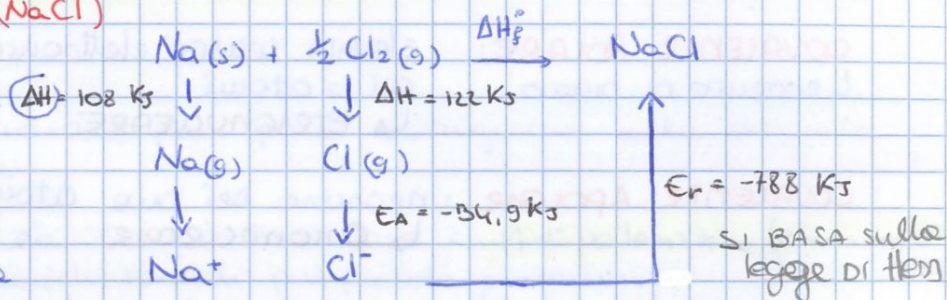 (NaCl)
Na(s) + ½ Cl₂(g) → NaCl
ΔH°f
ΔH = 108 KJ ↓ ↓ ΔH = 122 KJ
Na(g) Cl(g)
↓ ↓ EA = -34,9 KJ
Er = -788 KJ
Na⁺ Cl⁻
SI BASA sulla
legge DI Hess